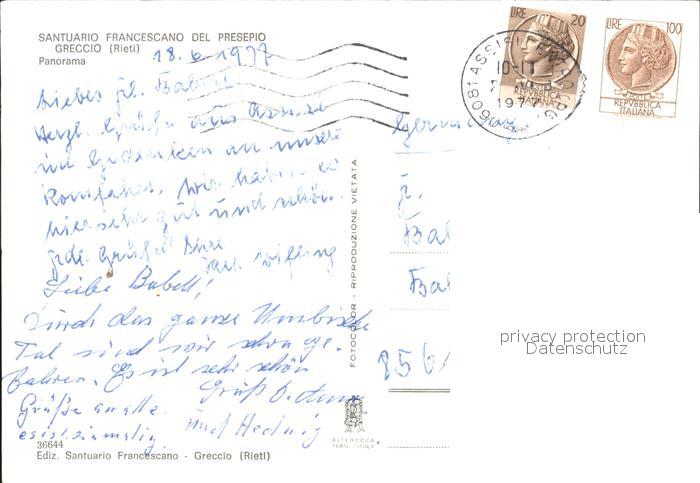 SANTUARIO FRANCESCANO DEL PRESEPIO
GRECCIO (Rieti)
Panorama
18.6 1977
Liebes Frl. Babett
Herzl. Grüße aus Assisi
im Gedenken an unsere
Romfahrt. Wir haben es
hier sehr gut und schön.
Grüße Ihre
Liebe Babett!
Durch das ganze Umbische
Tal sind wir schon ge-
fahren. Es ist sehr schön
Gruß
Grüße an alle und Hedwig
es ist einmalig.
36644
Ediz. Santuario Francescano - Greccio (Rieti)
FOTOCOLOR - RIPRODUZIONE VIETATA
ALTEROCCA
TERNI - ITALY
LIRE 20
REPVBBLICA
ITALIANA
LIRE 100
REPVBBLICA
ITALIANA
06081 ASSISI
10-11
1977
Germany
Bab
856
privacy protection
Datenschutz